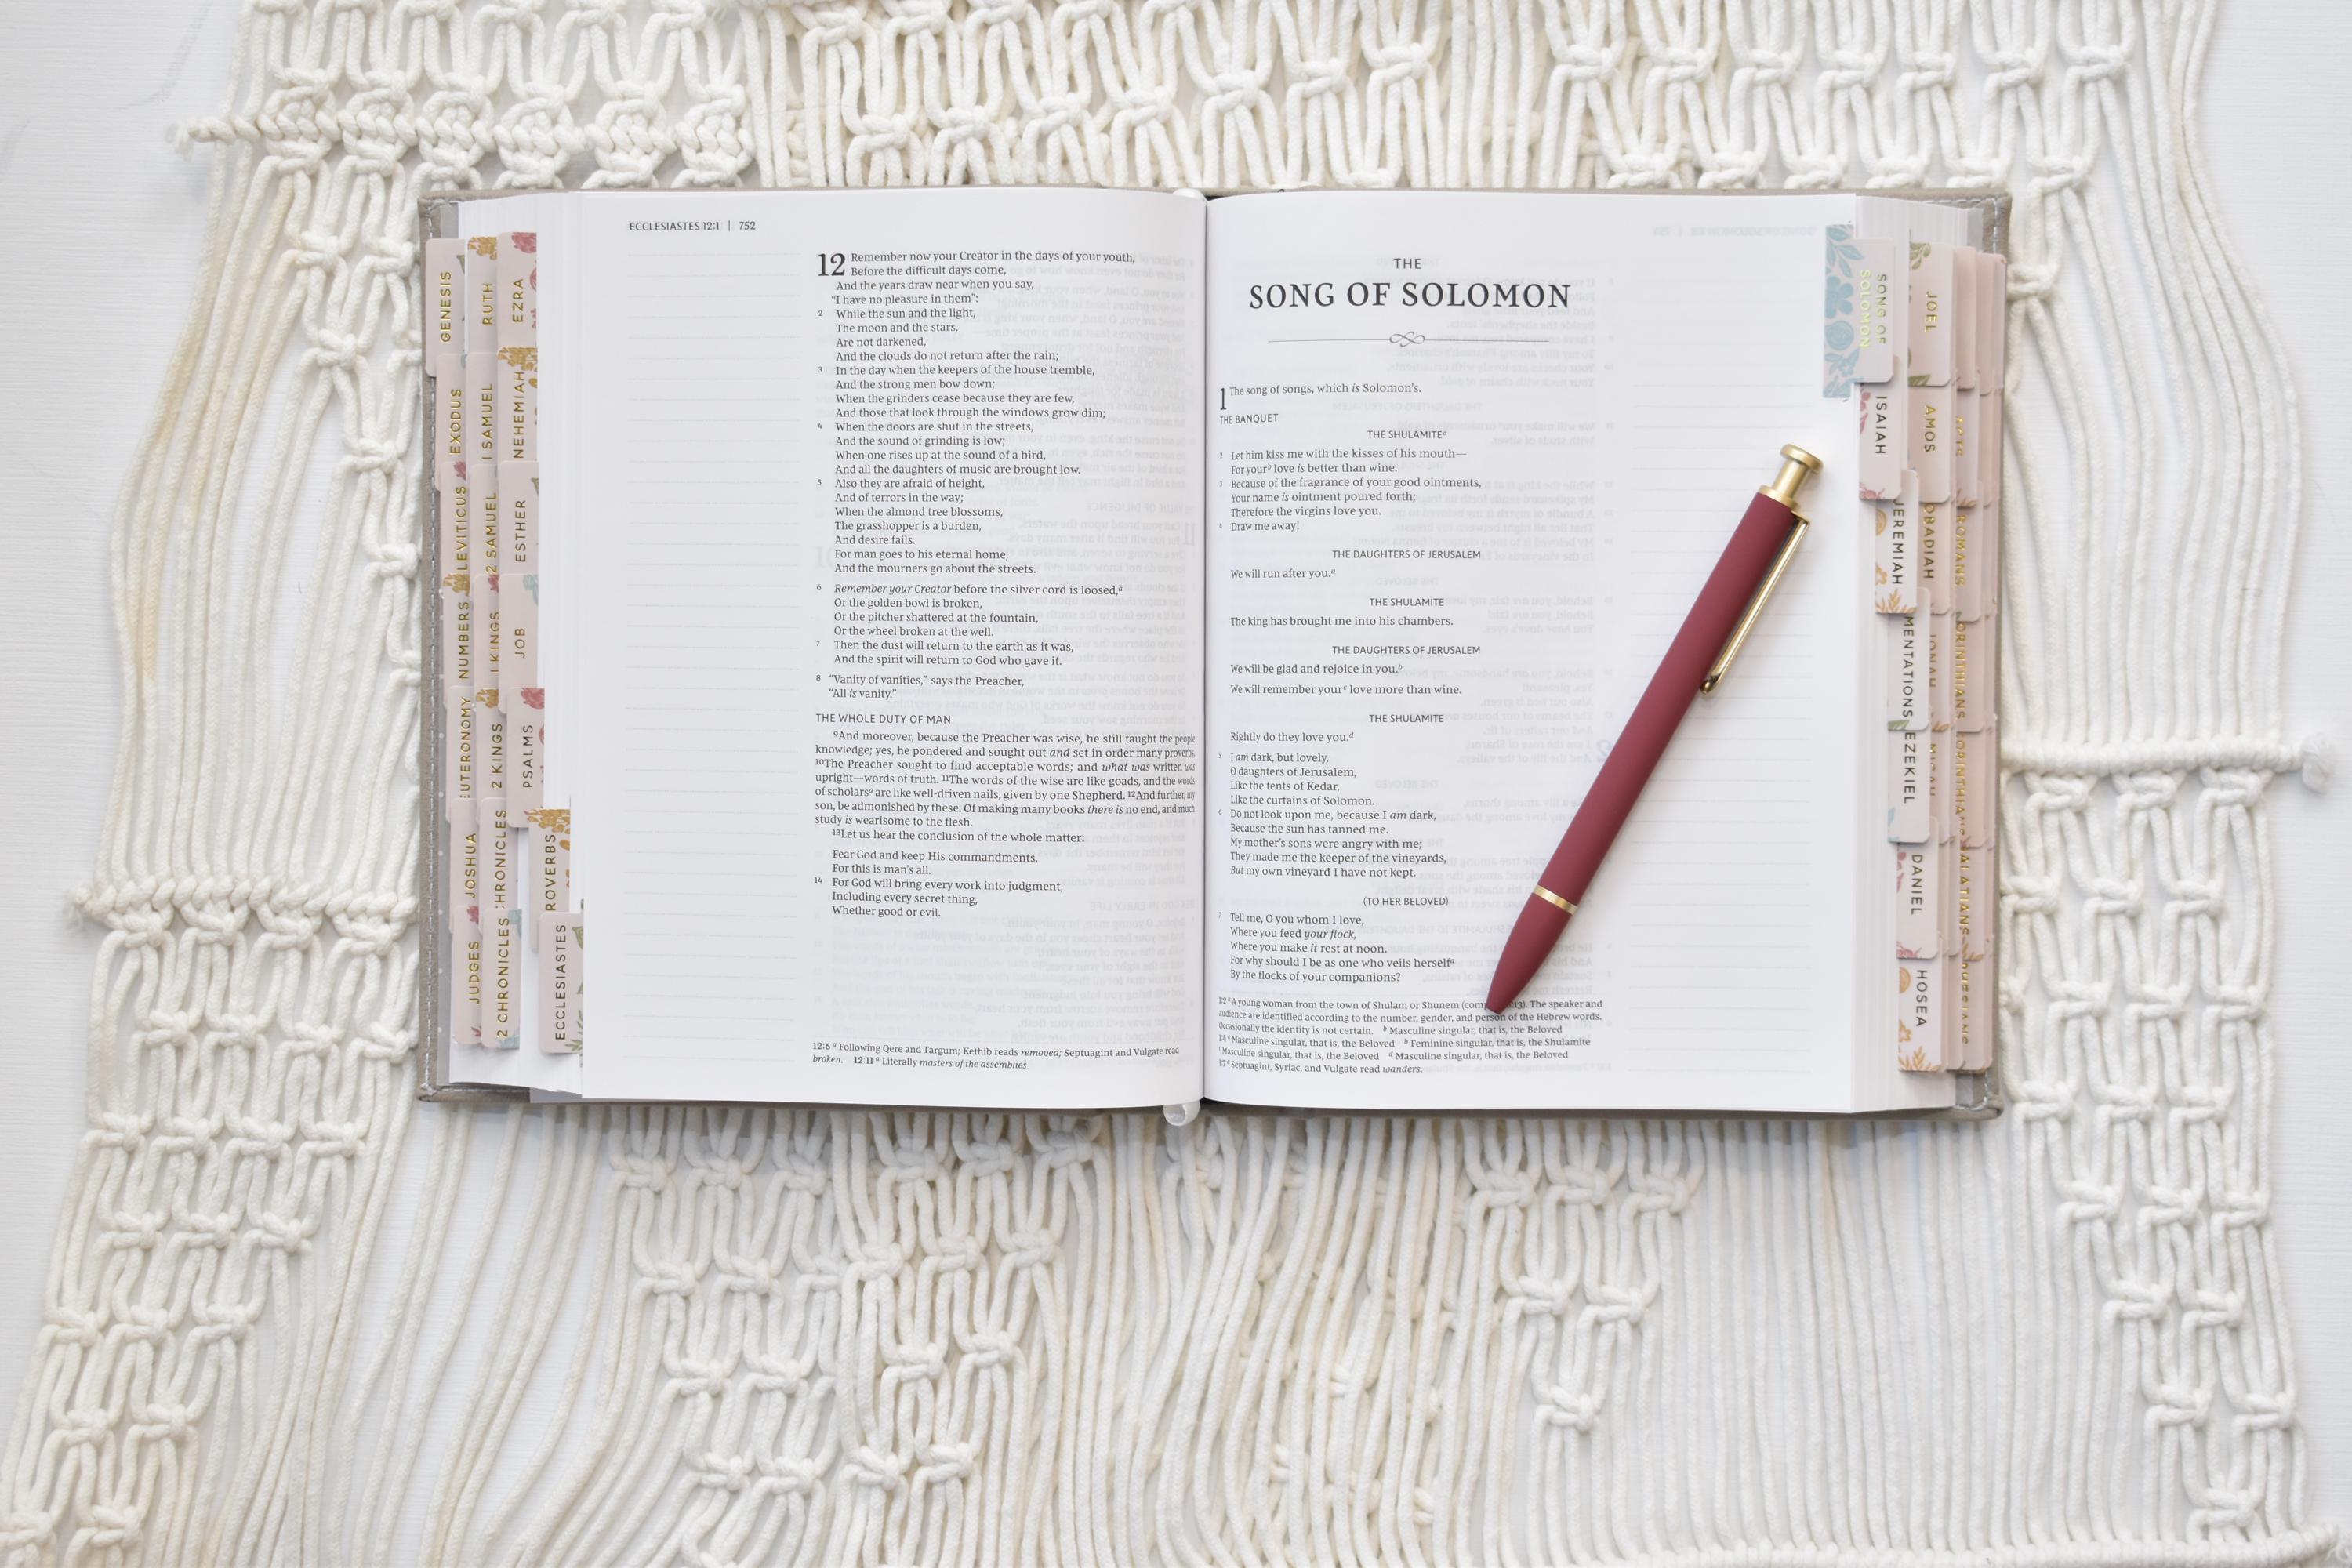 ECCLESIASTES 12:1 | 752
12 Remember now your Creator in the days of your youth,
Before the difficult days come,
And the years draw near when you say,
“I have no pleasure in them”:
2 While the sun and the light,
The moon and the stars,
Are not darkened,
And the clouds do not return after the rain;
3 In the day when the keepers of the house tremble,
And the strong men bow down;
When the grinders cease because they are few,
And those that look through the windows grow dim;
4 When the doors are shut in the streets,
And the sound of grinding is low;
When one rises up at the sound of a bird,
And all the daughters of music are brought low.
5 Also they are afraid of height,
And of terrors in the way;
When the almond tree blossoms,
The grasshopper is a burden,
And desire fails.
For man goes to his eternal home,
And the mourners go about the streets.
6 Remember your Creator before the silver cord is loosed,a
Or the golden bowl is broken,
Or the pitcher shattered at the fountain,
Or the wheel broken at the well.
7 Then the dust will return to the earth as it was,
And the spirit will return to God who gave it.
8 “Vanity of vanities,” says the Preacher,
“All is vanity.”
THE WHOLE DUTY OF MAN
9And moreover, because the Preacher was wise, he still taught the people
knowledge; yes, he pondered and sought out and set in order many proverbs.
10The Preacher sought to find acceptable words; and what was written was
upright—words of truth. 11The words of the wise are like goads, and the words
of scholarsa are like well-driven nails, given by one Shepherd. 12And further, my
son, be admonished by these. Of making many books there is no end, and much
study is wearisome to the flesh.
13Let us hear the conclusion of the whole matter:
Fear God and keep His commandments,
For this is man’s all.
14 For God will bring every work into judgment,
Including every secret thing,
Whether good or evil.
12:6 a Following Qere and Targum; Kethib reads removed; Septuagint and Vulgate read
broken. 12:11 a Literally masters of the assemblies
THE
SONG OF SOLOMON
1 The song of songs, which is Solomon’s.
THE BANQUET
THE SHULAMITEa
2 Let him kiss me with the kisses of his mouth—
For yourb love is better than wine.
3 Because of the fragrance of your good ointments,
Your name is ointment poured forth;
Therefore the virgins love you.
4 Draw me away!
THE DAUGHTERS OF JERUSALEM
We will run after you.a
THE SHULAMITE
The king has brought me into his chambers.
THE DAUGHTERS OF JERUSALEM
We will be glad and rejoice in you.b
We will remember yourc love more than wine.
THE SHULAMITE
Rightly do they love you.d
5 I am dark, but lovely,
O daughters of Jerusalem,
Like the tents of Kedar,
Like the curtains of Solomon.
6 Do not look upon me, because I am dark,
Because the sun has tanned me.
My mother’s sons were angry with me;
They made me the keeper of the vineyards,
But my own vineyard I have not kept.
(TO HER BELOVED)
7 Tell me, O you whom I love,
Where you feed your flock,
Where you make it rest at noon.
For why should I be as one who veils herselfa
By the flocks of your companions?
1:2 a A young woman from the town of Shulam or Shunem (com 13). The speaker and
audience are identified according to the number, gender, and person of the Hebrew words.
Occasionally the identity is not certain. b Masculine singular, that is, the Beloved
1:4 a Masculine singular, that is, the Beloved b Feminine singular, that is, the Shulamite
c Masculine singular, that is, the Beloved d Masculine singular, that is, the Beloved
1:7 a Septuagint, Syriac, and Vulgate read wanders.
GENESIS
EXODUS
LEVITICUS
NUMBERS
EUTERONOMY
JOSHUA
JUDGES
RUTH
1 SAMUEL
2 SAMUEL
1 KINGS
2 KINGS
CHRONICLES
2 CHRONICLES
EZRA
NEHEMIAH
ESTHER
JOB
PSALMS
ROVERBS
ECCLESIASTES
SONG OF
SOLOMON
ISAIAH
JEREMIAH
MENTATIONS
EZEKIEL
DANIEL
HOSEA
JOEL
AMOS
OBADIAH
JONAH
MICAH
ROMANS
ORINTHIANS
ORINTHIANS
ALATIANS